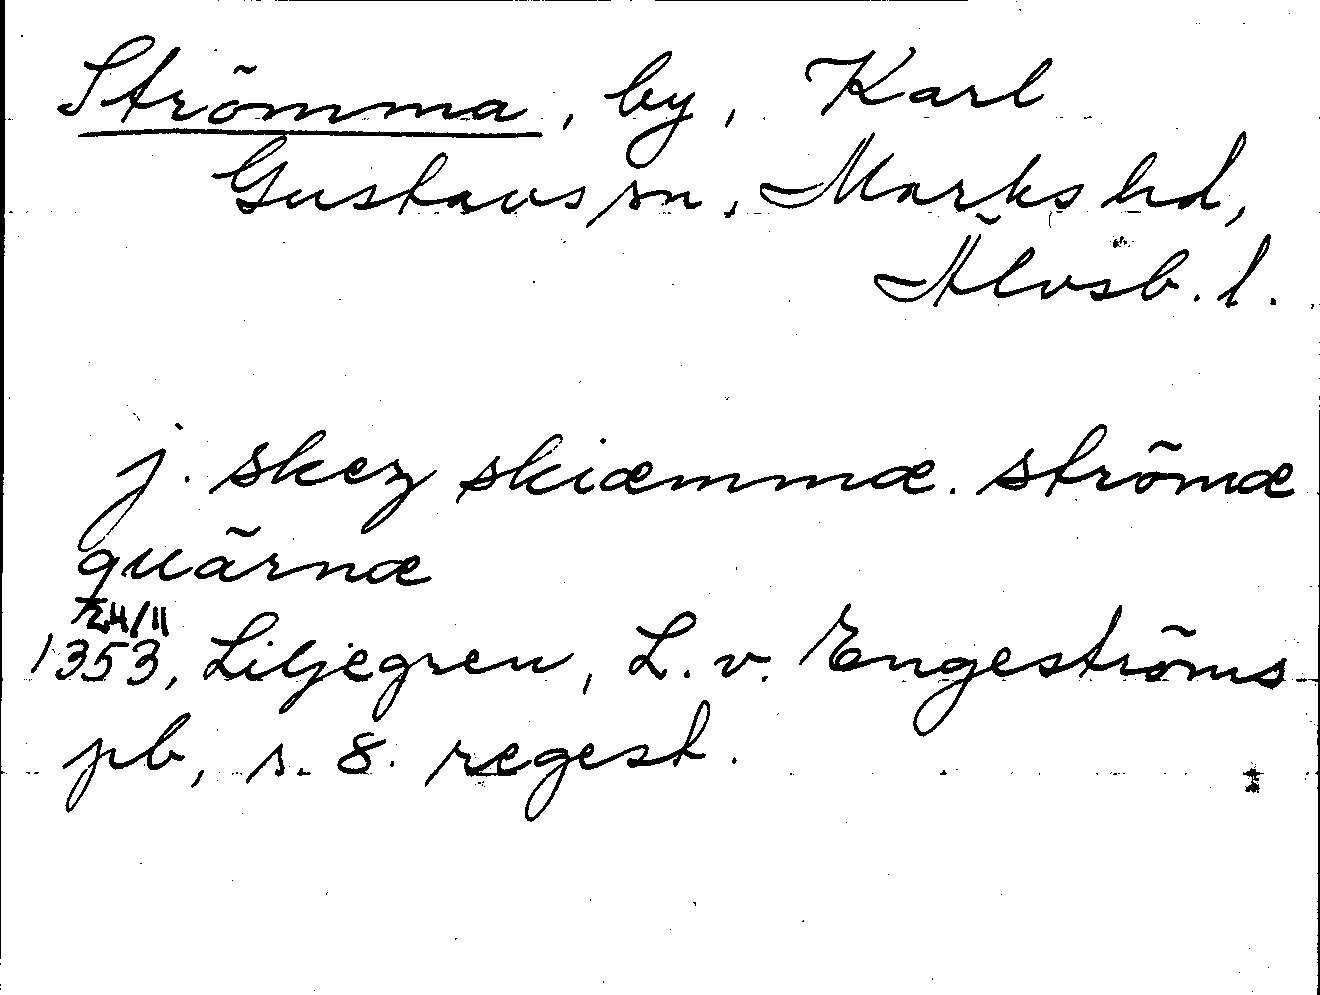 Strömma, by, Karl
Gustavs sn, Marks hd,
Älvsb. l.
j. skez skiæmmæ. strömæ
quärnæ
24/11
1353, Liljegren, L. v. Engeströms
pb, s. 8. regest.